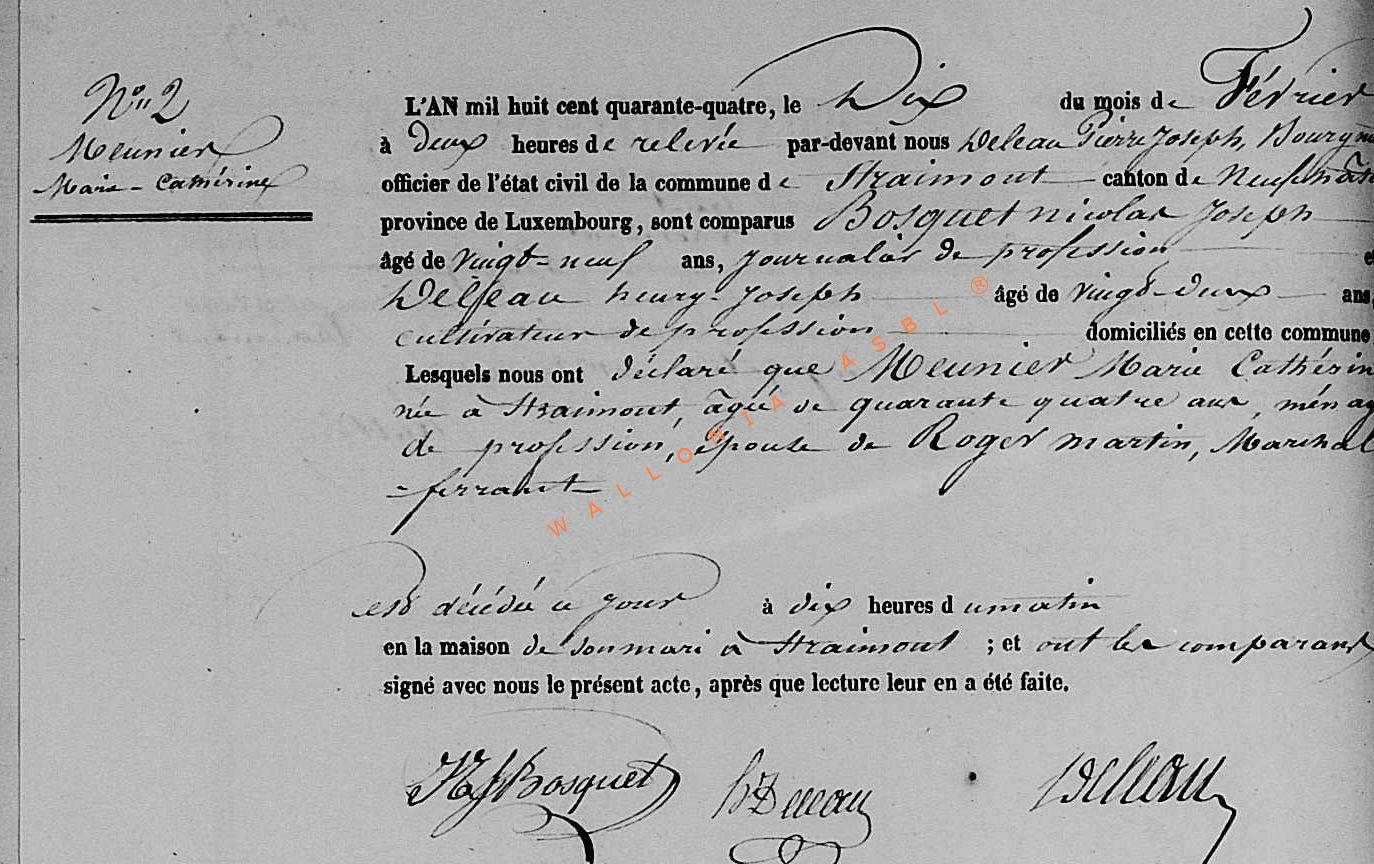 N° 2
Meunier
Marie-Cathérine
L'AN mil huit cent quarante-quatre, le Dix du mois de Février
à deux heures de relevée par-devant nous Deleau Pierre Joseph, Bourgm
officier de l'état civil de la commune de Straimont canton de Neufchâte
province de Luxembourg, sont comparus Bosquet nicolas Joseph
âgé de vingt-neuf ans, journalier de profession et
Delleau henry-Joseph âgé de vingt-deux ans,
cultivateur de profession domiciliés en cette commune
Lesquels nous ont déclaré que Meunier Marie Cathérin
née à Straimont, âgée de quarante quatre ans, ménag
de profession, épouse de Roger martin, Marchal
-ferrant
est décédée ce jour à dix heures du matin
en la maison de son mari à Straimont ; et ont les comparans
signé avec nous le présent acte, après que lecture leur en a été faite.
Bosquet Delleau Delleau
WALLONIA ASBL ®